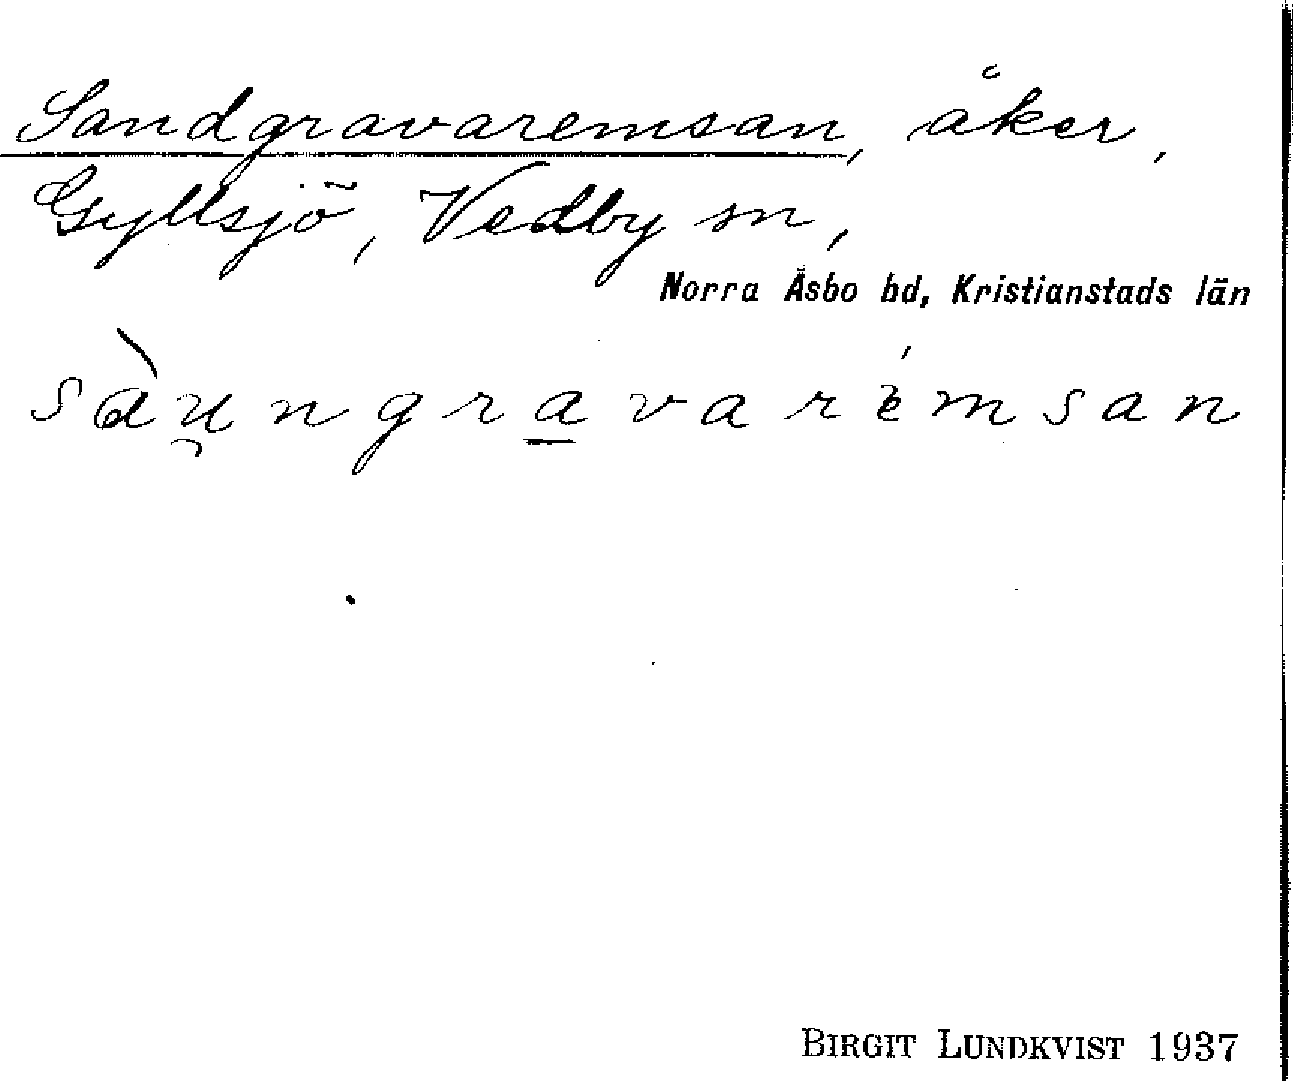 Sandgravaremsan, åker,
Gyllsjö, Vedby sn,
Norra Åsbo hd, Kristianstads län
sàu̯ngra̲varémsan
BIRGIT LUNDKVIST 1937